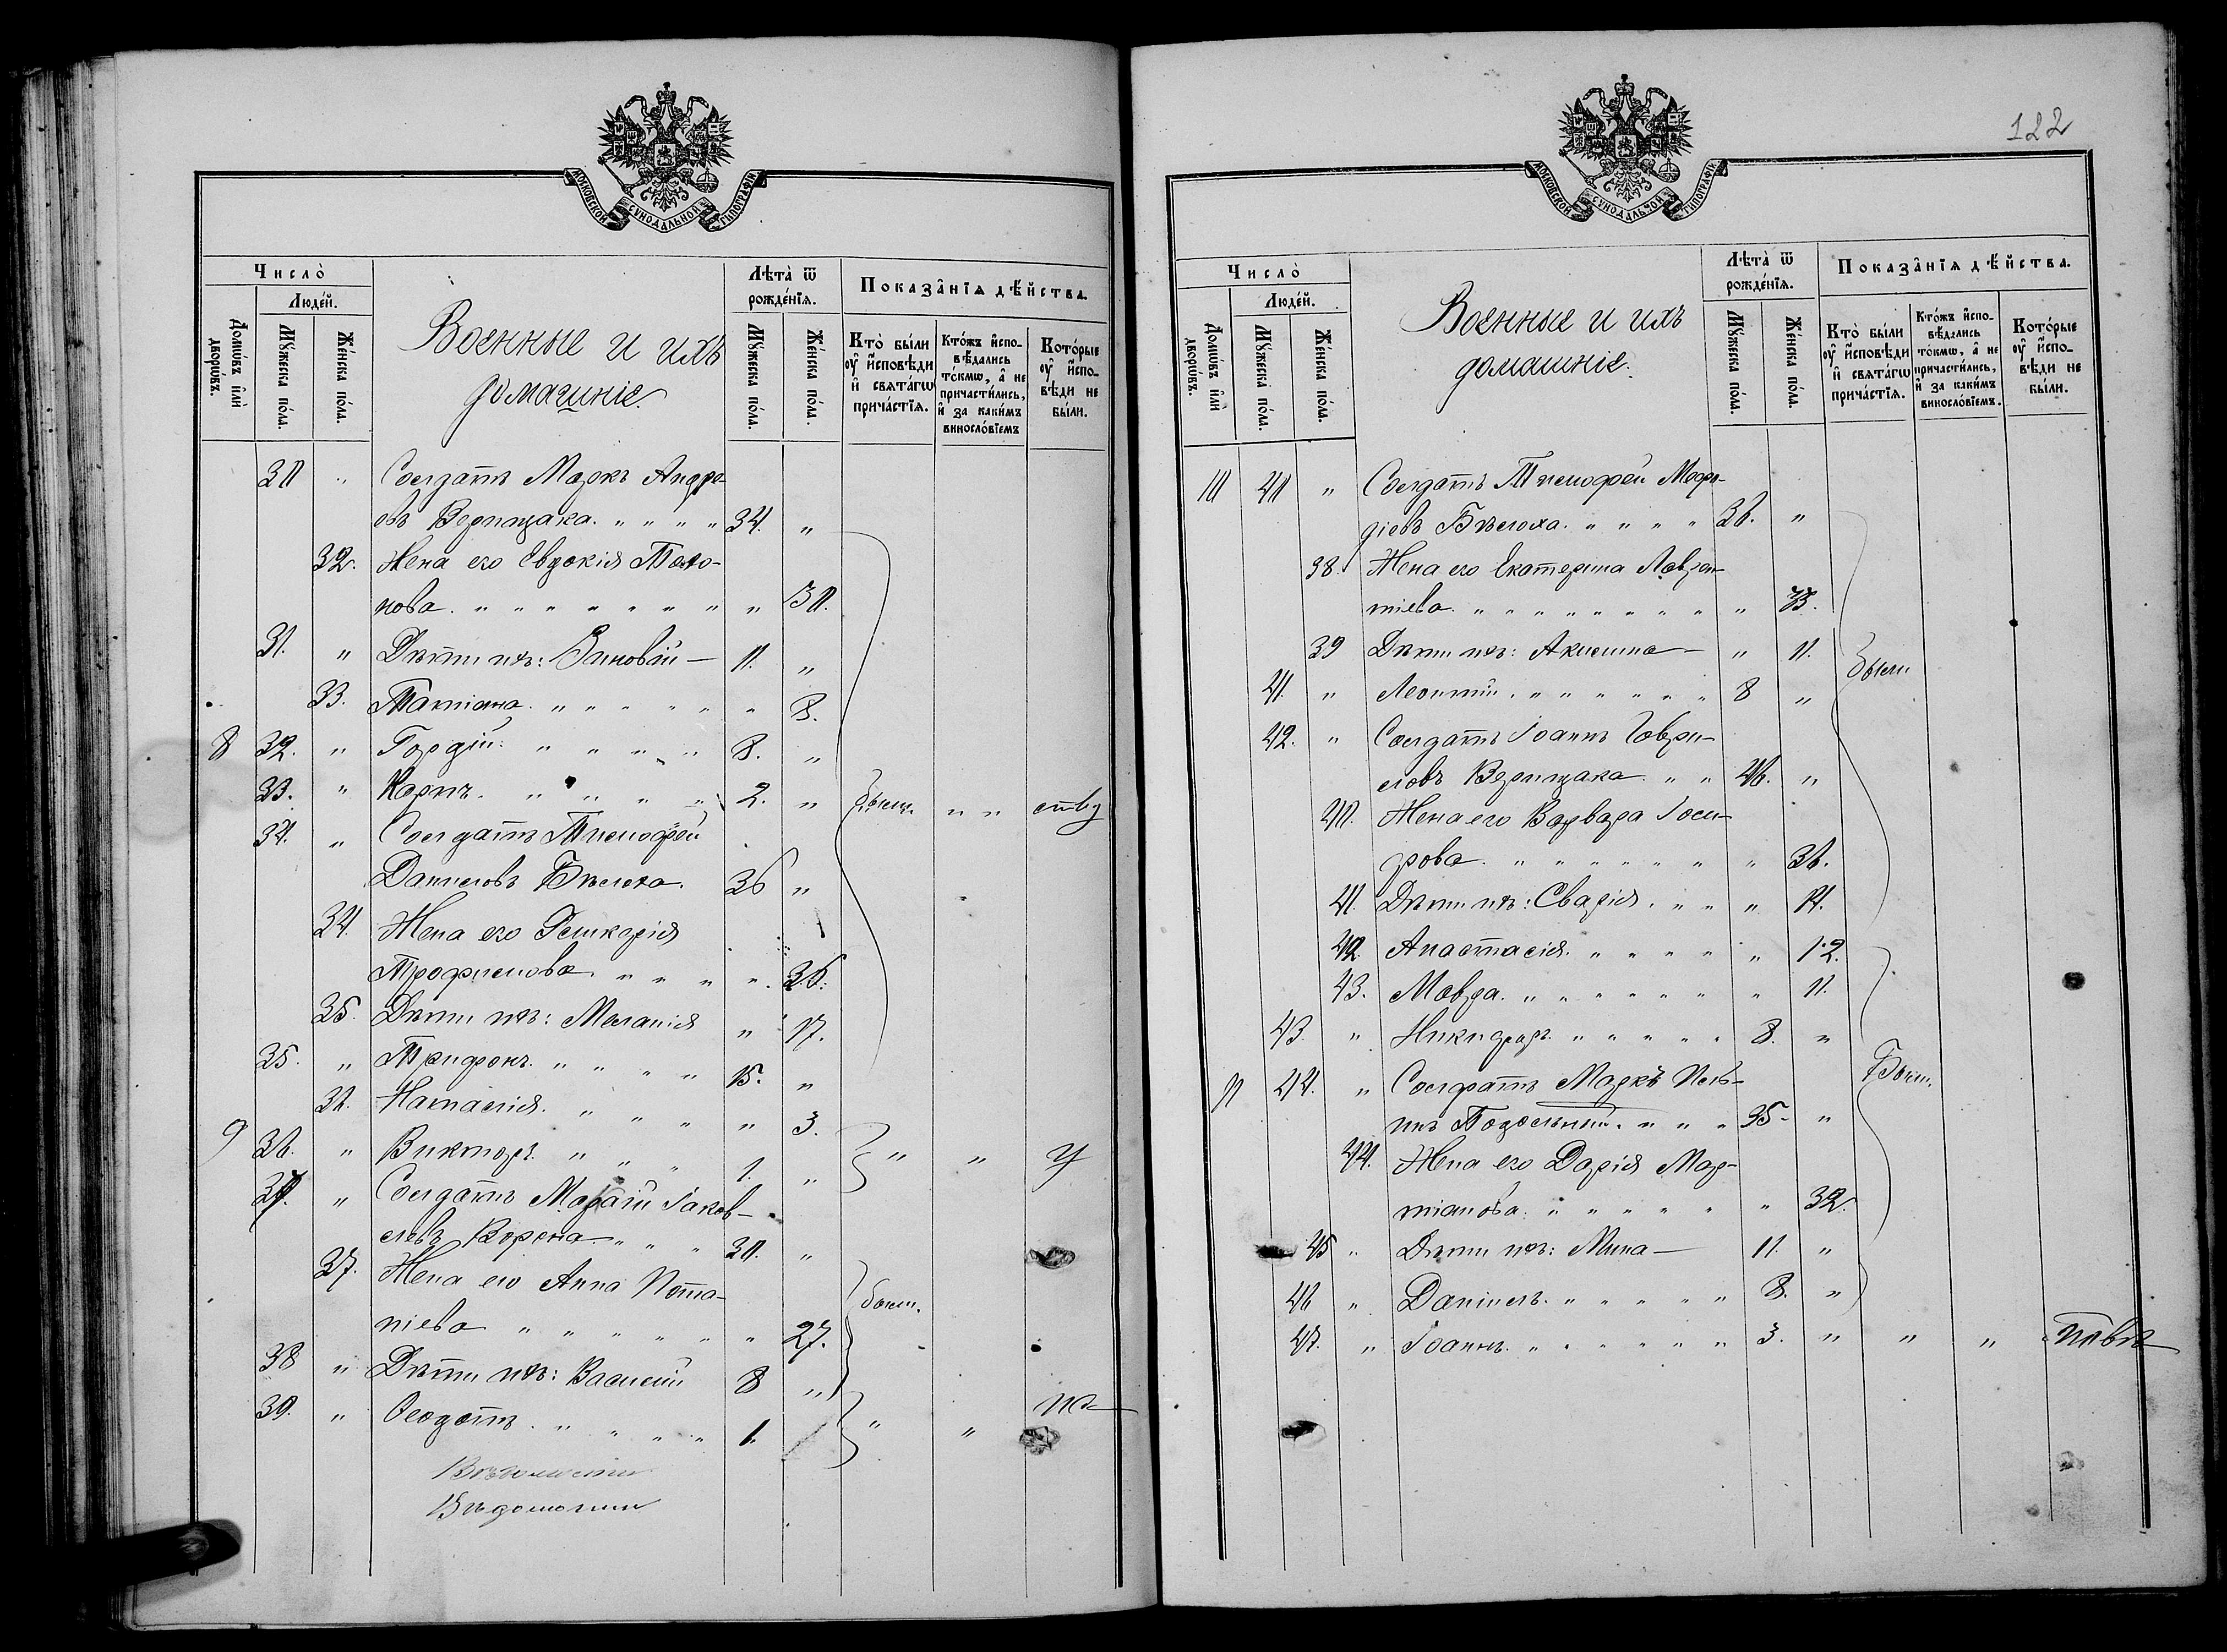 МОСКОВСКОЙ СѴНОДАЛЬНОЙ ТИПОГРАФІИ
Число̀
Людéй.
Домѡ́въ и҆лѝ дворѡ́въ.
Мꙋ́жеска по́ла.
Же́нска по́ла.
Военные и ихъ
домашніе.
Лѣта̀ ѿ
рожде́нїѧ.
Мꙋ́жеска по́ла.
Же́нска по́ла.
Показа̑нїѧ дѣ́йства.
Кто̀ бы́ли
ᲂу҆ и҆́сповѣди
и҆ свѧта́гѡ
прича́стїѧ.
Кто́жъ и҆спо-
вѣ́дались
то́кмѡ, а҆ не
причасти́лись,
и҆ за каки́мъ
винослóвїемъ
Кото́рые
ᲂу҆ и҆́спо-
вѣди не
бы́ли.
30 " Солдатъ Маркъ Андре-
евъ Верищака. " " " " 34. "
32. Жена его Евдокія
нова. " " " " " " " " 30.
31. " Дѣти ихъ: Зиновій — 11. "
33. Татіана. " " " " " " 8.
8 32. " Гордій. " " " " 8. "
33. " Карпъ. " " " " 2. " были " "
34. " Солдатъ Тимофей
Даниловъ Бѣлоха. 36 "
34. Жена его Гликерія
Трофимова. " " " " 36.
35. Дѣти ихъ: Меланія " 17.
35. " Трифонъ. " " " " 15. "
Наталія. " " " " 3.
9 36. " Викторъ. " " " 1. " " "
37. " Солдатъ Іаков-
левъ " " " 30. "
37. Жена его Анна Пота-
піева " " " " " " 27. были.
38 " Дѣти их: Василій 8 "
39. " Ѳеодотъ. " " " " 1. " "
Вѣдомости
122
МОСКОВСКОЙ СѴНОДАЛЬНОЙ ТИПОГРАФІИ
Число̀
Людéй.
Домѡ́въ и҆лѝ дворѡ́въ.
Мꙋ́жеска по́ла.
Же́нска по́ла.
Военные и ихъ
домашніе.
Лѣта̀ ѿ
рожде́нїѧ.
Мꙋ́жеска по́ла.
Же́нска по́ла.
Показа̑нїѧ дѣ́йства.
Кто̀ бы́ли
ᲂу҆ и҆́сповѣди
и҆ свѧта́гѡ
прича́стїѧ.
Кто́жъ и҆спо-
вѣ́дались
то́кмѡ, а҆ не
причасти́лись,
и҆ за каки́мъ
винослóвїемъ.
Кото́рые
ᲂу҆ и҆́спо-
вѣди не
бы́ли.
10 40 " Солдатъ Тимофей
Бѣлоха. " " " " 36. "
38. Жена его Екатерина Лаврен-
тіева. " " " " " " " "
39 Дѣти ихъ: Акилина — " 11. были
41. " Леонтій. " " " " " " 8 "
42. " Солдатъ Іоаннъ Гаври-
ловъ Верищака " " 46. "
40. Жена его Варвара
рова. " " " " " " " 36.
41. Дѣти ихъ: " " " 14.
42. Анастасія. " " " " " 12.
43. Мавра. " " " " " " " 11.
43. " Никифоръ. " " " " " 8. "
11 44. " Солдатъ Маркъ были.
" " " 35. "
44. Жена его Дарія Мар-
тіанова. " " " " " " 32.
45 " Дѣти ихъ: Мина — 11. "
46 " Даніилъ. " " " " " 8. "
47. " Іоаннъ. " " " " " " 3. " " "